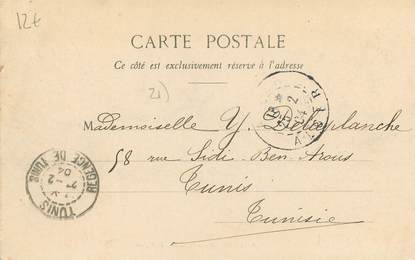 12€
CARTE POSTALE
Ce côté est exclusivement réservé à l'adresse
21)
Mademoiselle Y. Delaplanche
58 rue Sidi-Ben-Arous
Tunis
Tunisie
REGENCE DE TUNIS
TUNIS